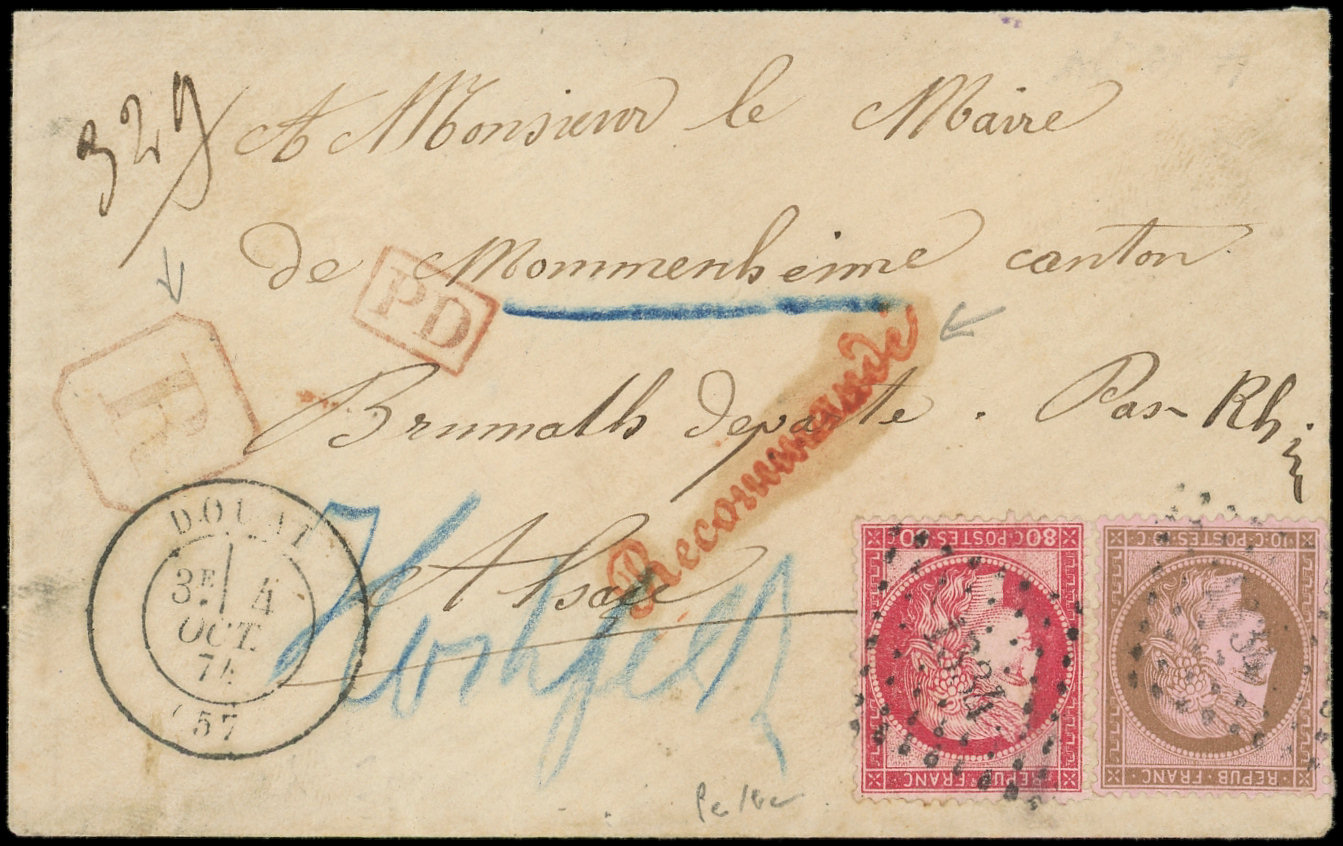 329
A Monsieur le Maire
de Mommenheime canton
PD
R
Brumath departe. Bas-Rhin
Recommandé
Alsace
DOUAI
3E 4
OCT.
74
(57)
80 C POSTES 80
REPUB FRANC
10 C POSTES 10 C
REPUB FRANC